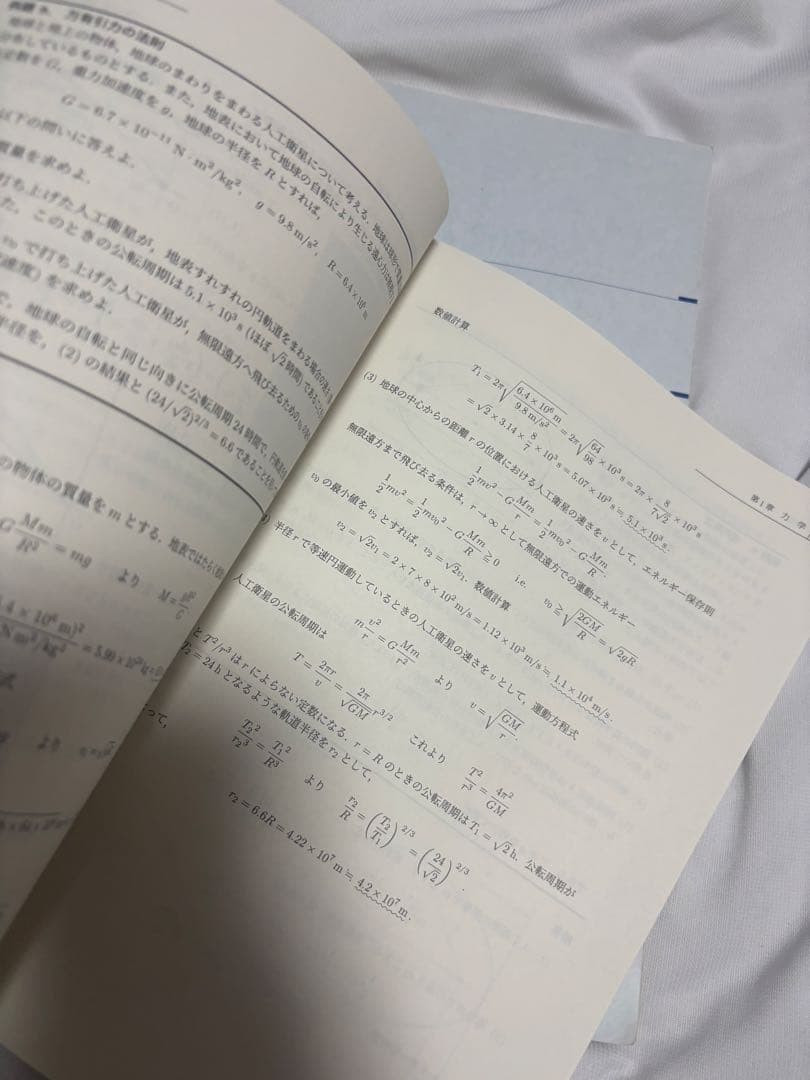 万有引力の法則
地球と地上の物体、地球のまわりをまわる人工衛星について考える。地球は球形で
しているものとする。また、地表において地球の自転により生じる遠心力は
定数をG、重力加速度をg、地球の半径をRとすれば、
G = 6.7 × 10⁻¹¹ N·m²/kg², g = 9.8 m/s², R = 6.4 × 10⁶ m
以下の問いに答えよ。
質量を求めよ。
打ち上げた人工衛星が、地表すれすれの円軌道をまわる場合の
た、このときの公転周期は 5.1 × 10³ s (ほぼ √2 時間) であること
v₀ で打ち上げた人工衛星が、無限遠方へ飛び去るための
速度) を求めよ。
で、地球の自転と同じ向きに公転周期24時間で、
半径を、(2) の結果と (24/√2)^{2/3} = 6.6 であることを
の物体の質量を m とする。地表ではたらく
G Mm/R² = mg より M = gR²/G
より
第1章 力学
数値計算
T₁ = 2π√(6.4 × 10⁶ m / 9.8 m/s²) = 2π√(64/98) × 10³ s = 2π × 8/(7√2) × 10³ s
= √2 × 3.14 × 8/7 × 10³ s = 5.07 × 10³ s ≒ 5.1 × 10³ s.
(3) 地球の中心からの距離 r の位置における人工衛星の速さを v として、エネルギー保存則
1/2 mv² − G Mm/r = 1/2 mv₀² − G Mm/R.
無限遠方まで飛び去る条件は、r → ∞ として無限遠方での運動エネルギー
1/2 mv² = 1/2 mv₀² − G Mm/R ≧ 0 i.e. v₀ ≧ √(2GM/R) = √(2gR)
v₀ の最小値を v₂ とすれば、v₂ = √2 v₁. 数値計算
v₂ = √2 v₁ = 2 × 7 × 8 × 10² m/s = 1.12 × 10⁴ m/s ≒ 1.1 × 10⁴ m/s.
半径 r で等速円運動しているときの人工衛星の速さを v として、運動方程式
m v²/r = G Mm/r² より v = √(GM/r).
人工衛星の公転周期は
T = 2πr/v = 2π/√(GM) r^{3/2} これより T²/r³ = 4π²/GM
と T²/r³ は r によらない定数になる。r = R のときの公転周期は T₁ = √2 h. 公転周期が
T₂ = 24 h となるような軌道半径を r₂ として、
T₂²/r₂³ = T₁²/R³ より r₂/R = (T₂/T₁)^{2/3} = (24/√2)^{2/3}.
って、
r₂ = 6.6R = 4.22 × 10⁷ m ≒ 4.2 × 10⁷ m.